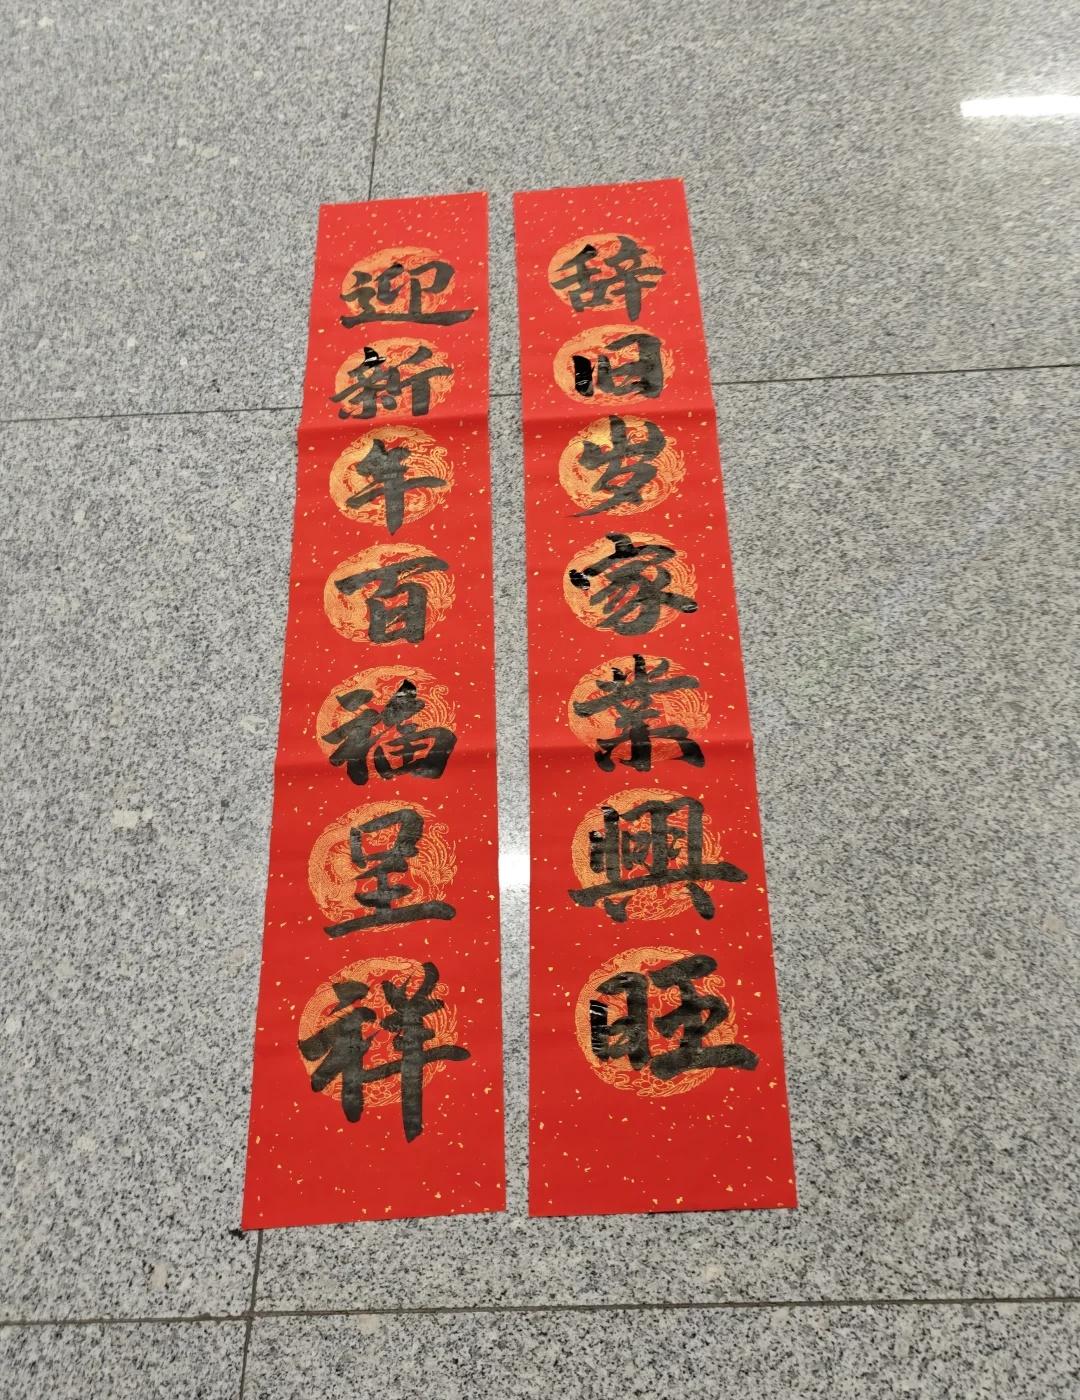 辞旧岁家業興旺
迎新年百福呈祥